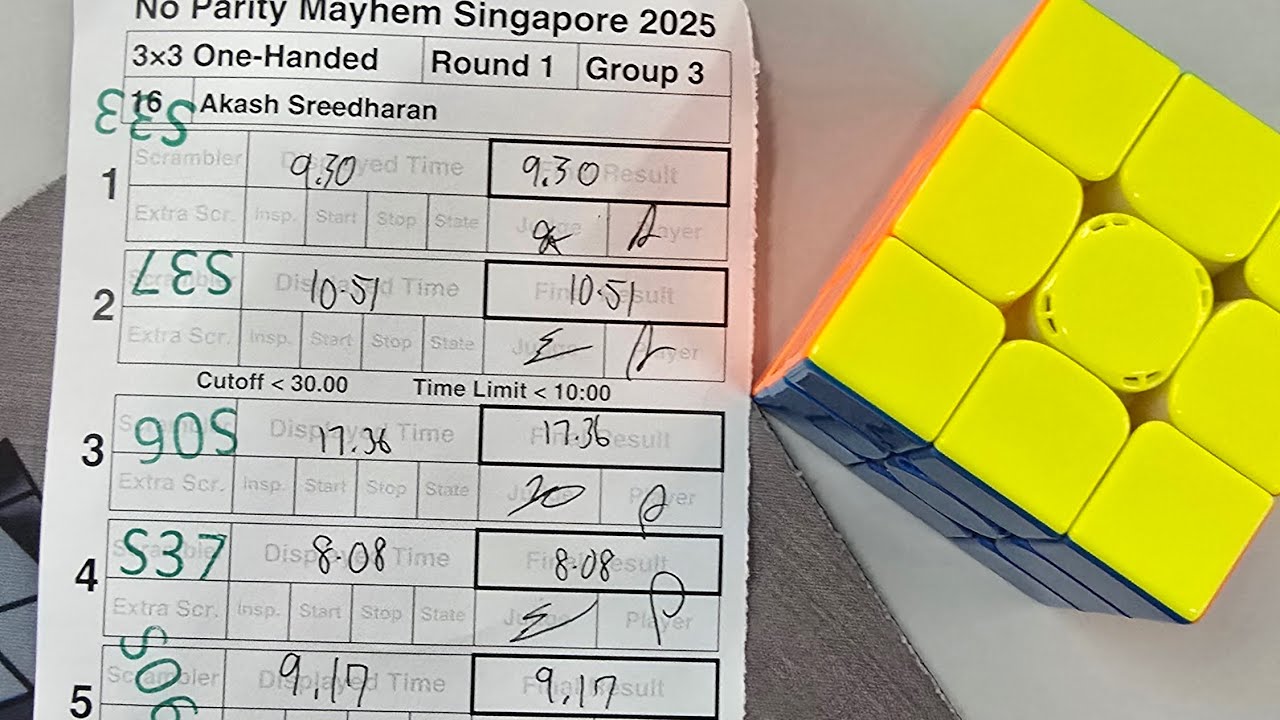 No Parity Mayhem Singapore 2025
3×3 One-Handed Round 1 Group 3
16 Akash Sreedharan
S33
1 Scrambler 9.30 Displayed Time 9.30 Final Result
Extra Scr. Insp. Start Stop State Judge Player
2 S37 Scrambler 10.51 Displayed Time 10.51 Final Result
Extra Scr. Insp. Start Stop State Judge Player
Cutoff < 30.00 Time Limit < 10:00
3 17.36 Displayed Time 17.36 Final Result
Extra Scr. Insp. Start Stop State Judge Player
4 S37 Scrambler 8.08 Displayed Time 8.08 Final Result
Extra Scr. Insp. Start Stop State Judge Player
5 S06 Scrambler 9.17 Displayed Time 9.17 Final Result